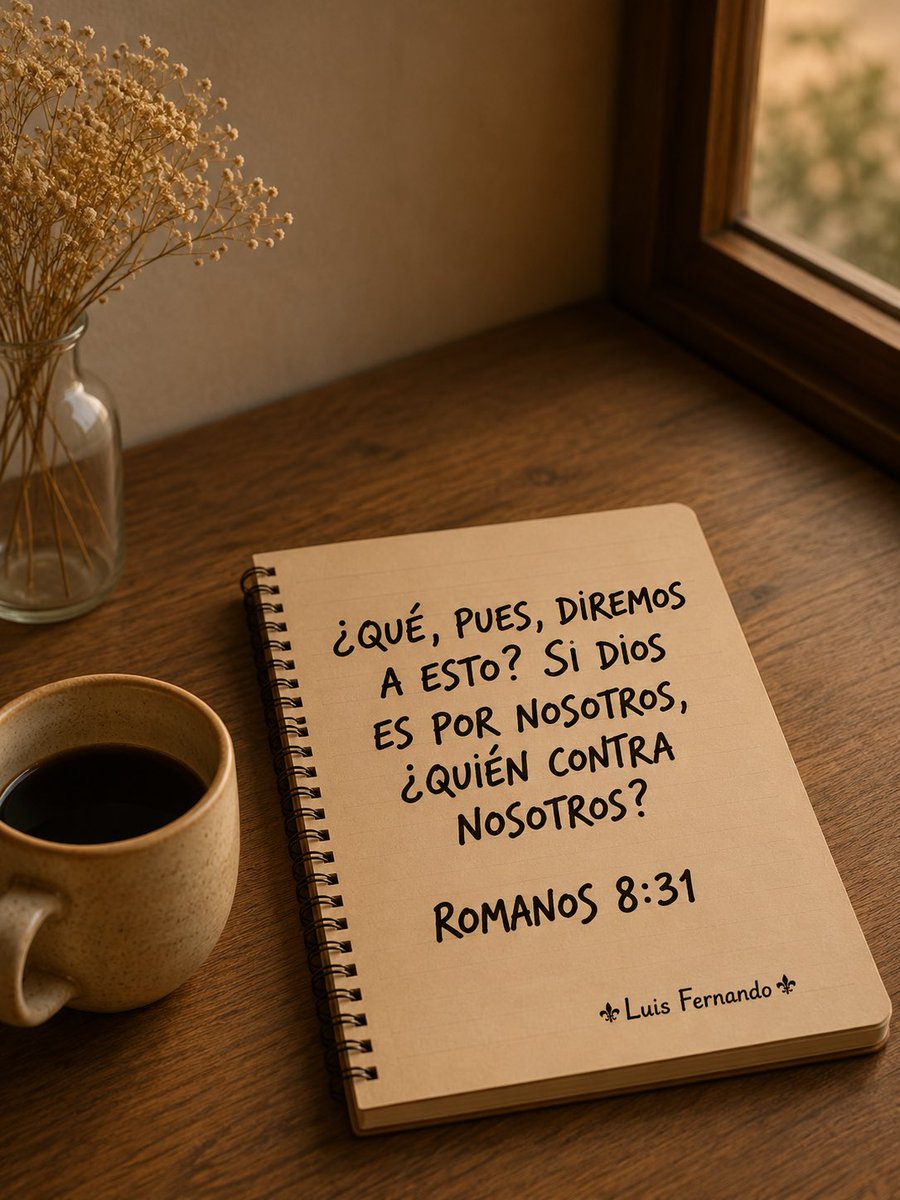 ¿QUÉ, PUES, DIREMOS
A ESTO? SI DIOS
ES POR NOSOTROS,
¿QUIÉN CONTRA
NOSOTROS?
ROMANOS 8:31
⚜Luis Fernando⚜